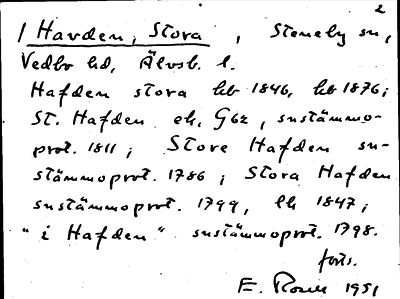 2
/ Havden, Stora, Steneby sn,
Vedbo hd, Älvsb. l.
Hafden stora hb 1846, hb 1876;
St. Hafden ek, G62, snstämmo-
prot. 1811; Store Hafden sn-
stämmoprot. 1786; Stora Hafden
snstämmoprot. 1799, lk 1847;
"i Hafden" snstämmoprot. 1798.
forts.
E. 1951